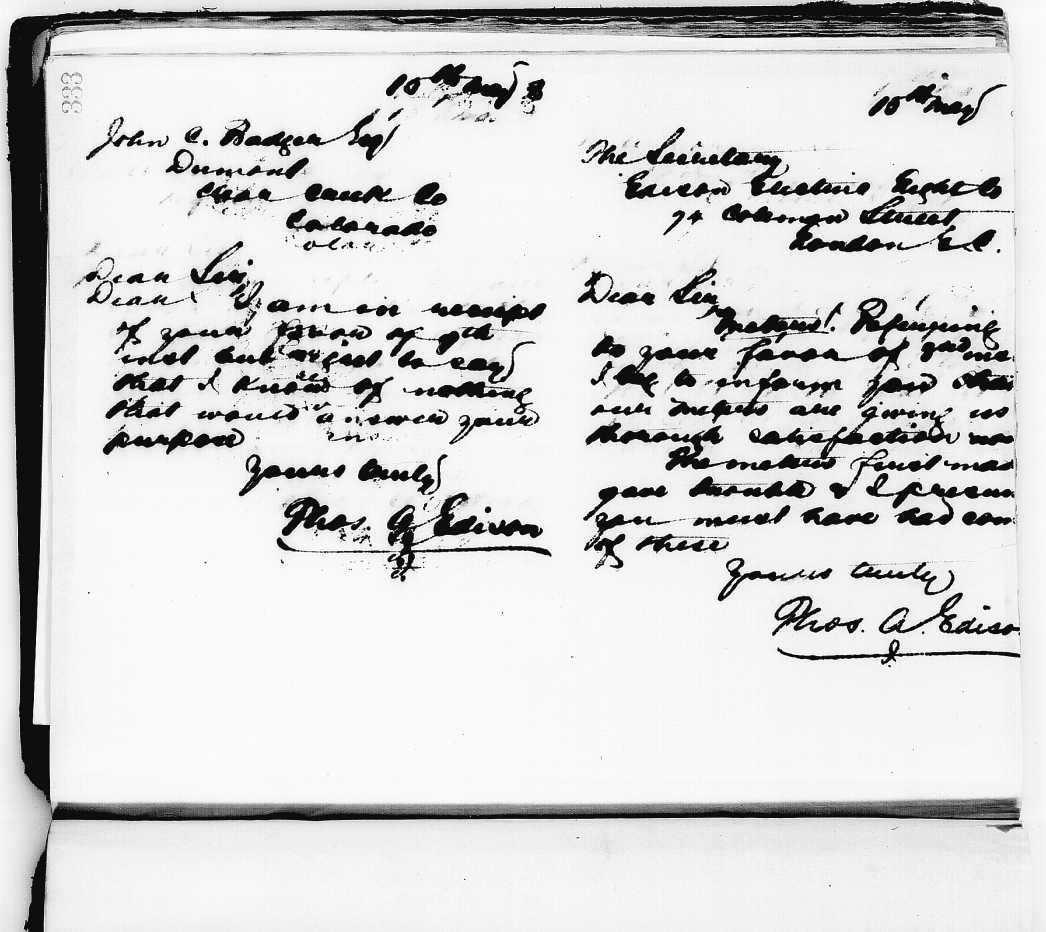 333
10th May 3
John C. Badger Esq
Dumont
Clear Creek Co
Colorado
Dear Sir,
I am in receipt
of your favor of 9th
inst but regret to say
that I know of nothing
that would answer your
purpose
Yours truly
Thos. A. Edison
I
10th May
The Secretary
Edison Electric Light Co
74 Coleman Street
London E.C.
Dear Sir,
Meters! Referring
to your favor of 2nd
I beg to inform you that
our meters are giving us
thorough satisfaction now
The meters first mad
gave trouble & I presum
you must have had som
of these
Yours truly
Thos. A. Ediso
I.